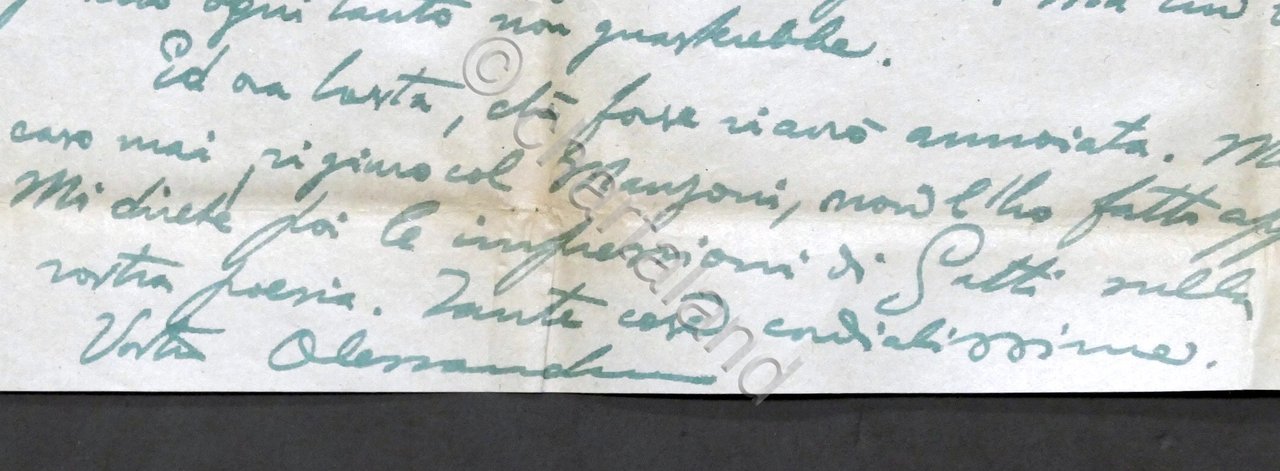 ogni tanto non guasterebbe.
Ed ora basta, chè forse vi avrò annoiata. M
caso mai, vi giuro col Manzoni, non l'ho fatto app
Mi direte poi le impressioni di Gatti sulla
vostra poesia. Tante cose cordialissime.
Vostro Alessandro
© Cherlaland